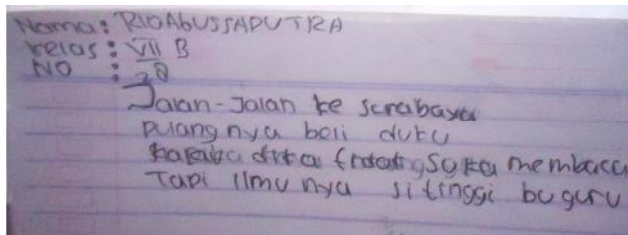 Nama: RIO AbUSSAPUTRA
kelas: VII B
NO : 28
Jalan-Jalan ke surabaya
pulang nya beli duku
suka membaca
Tapi Ilmu nya si tinggi bu guru